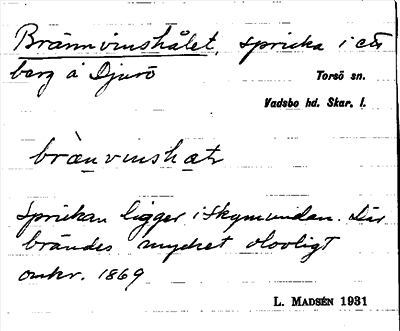 Brännvinshålet, spricka i ett
berg å Djurö
Torsö sn.
Vadsbo hd. Skar. l.
brä̀nvinshatr
Sprickan ligger i Skymundan. Där
brändes mycket olovligt
omkr. 1869
L. MADSÉN 1931